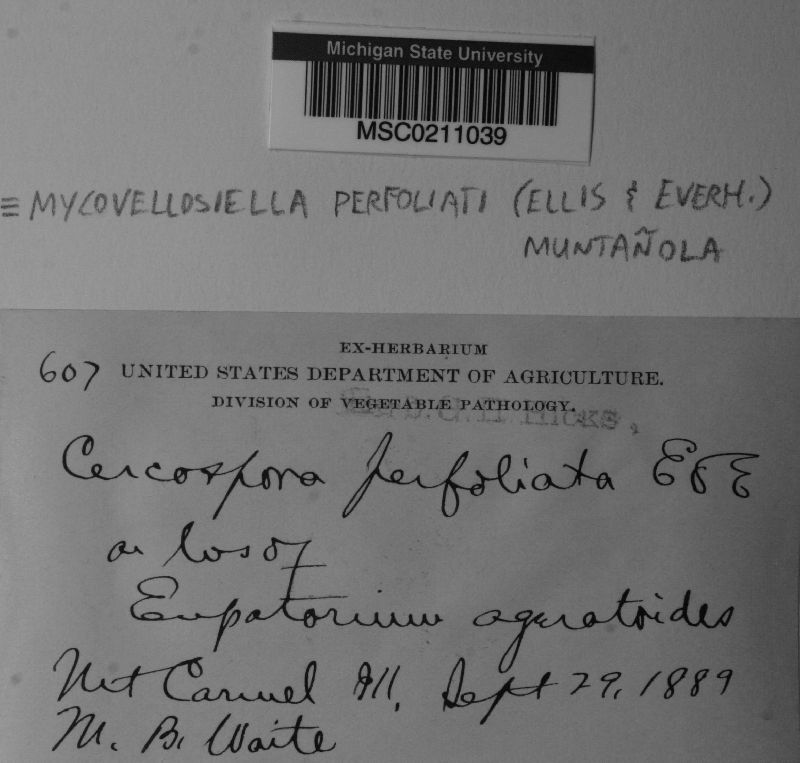 Michigan State University
MSC0211039
≡ MYCOVELLOSIELLA PERFOLIATI (ELLIS & EVERH.)
MUNTAÑOLA
EX-HERBARIUM
607 UNITED STATES DEPARTMENT OF AGRICULTURE.
DIVISION OF VEGETABLE PATHOLOGY.
Hicks,
Cercospora perfoliata E & E
on lvs of
Eupatorium ageratoides
Mt Carmel Ill, Sept 29, 1889
M. B. Waite